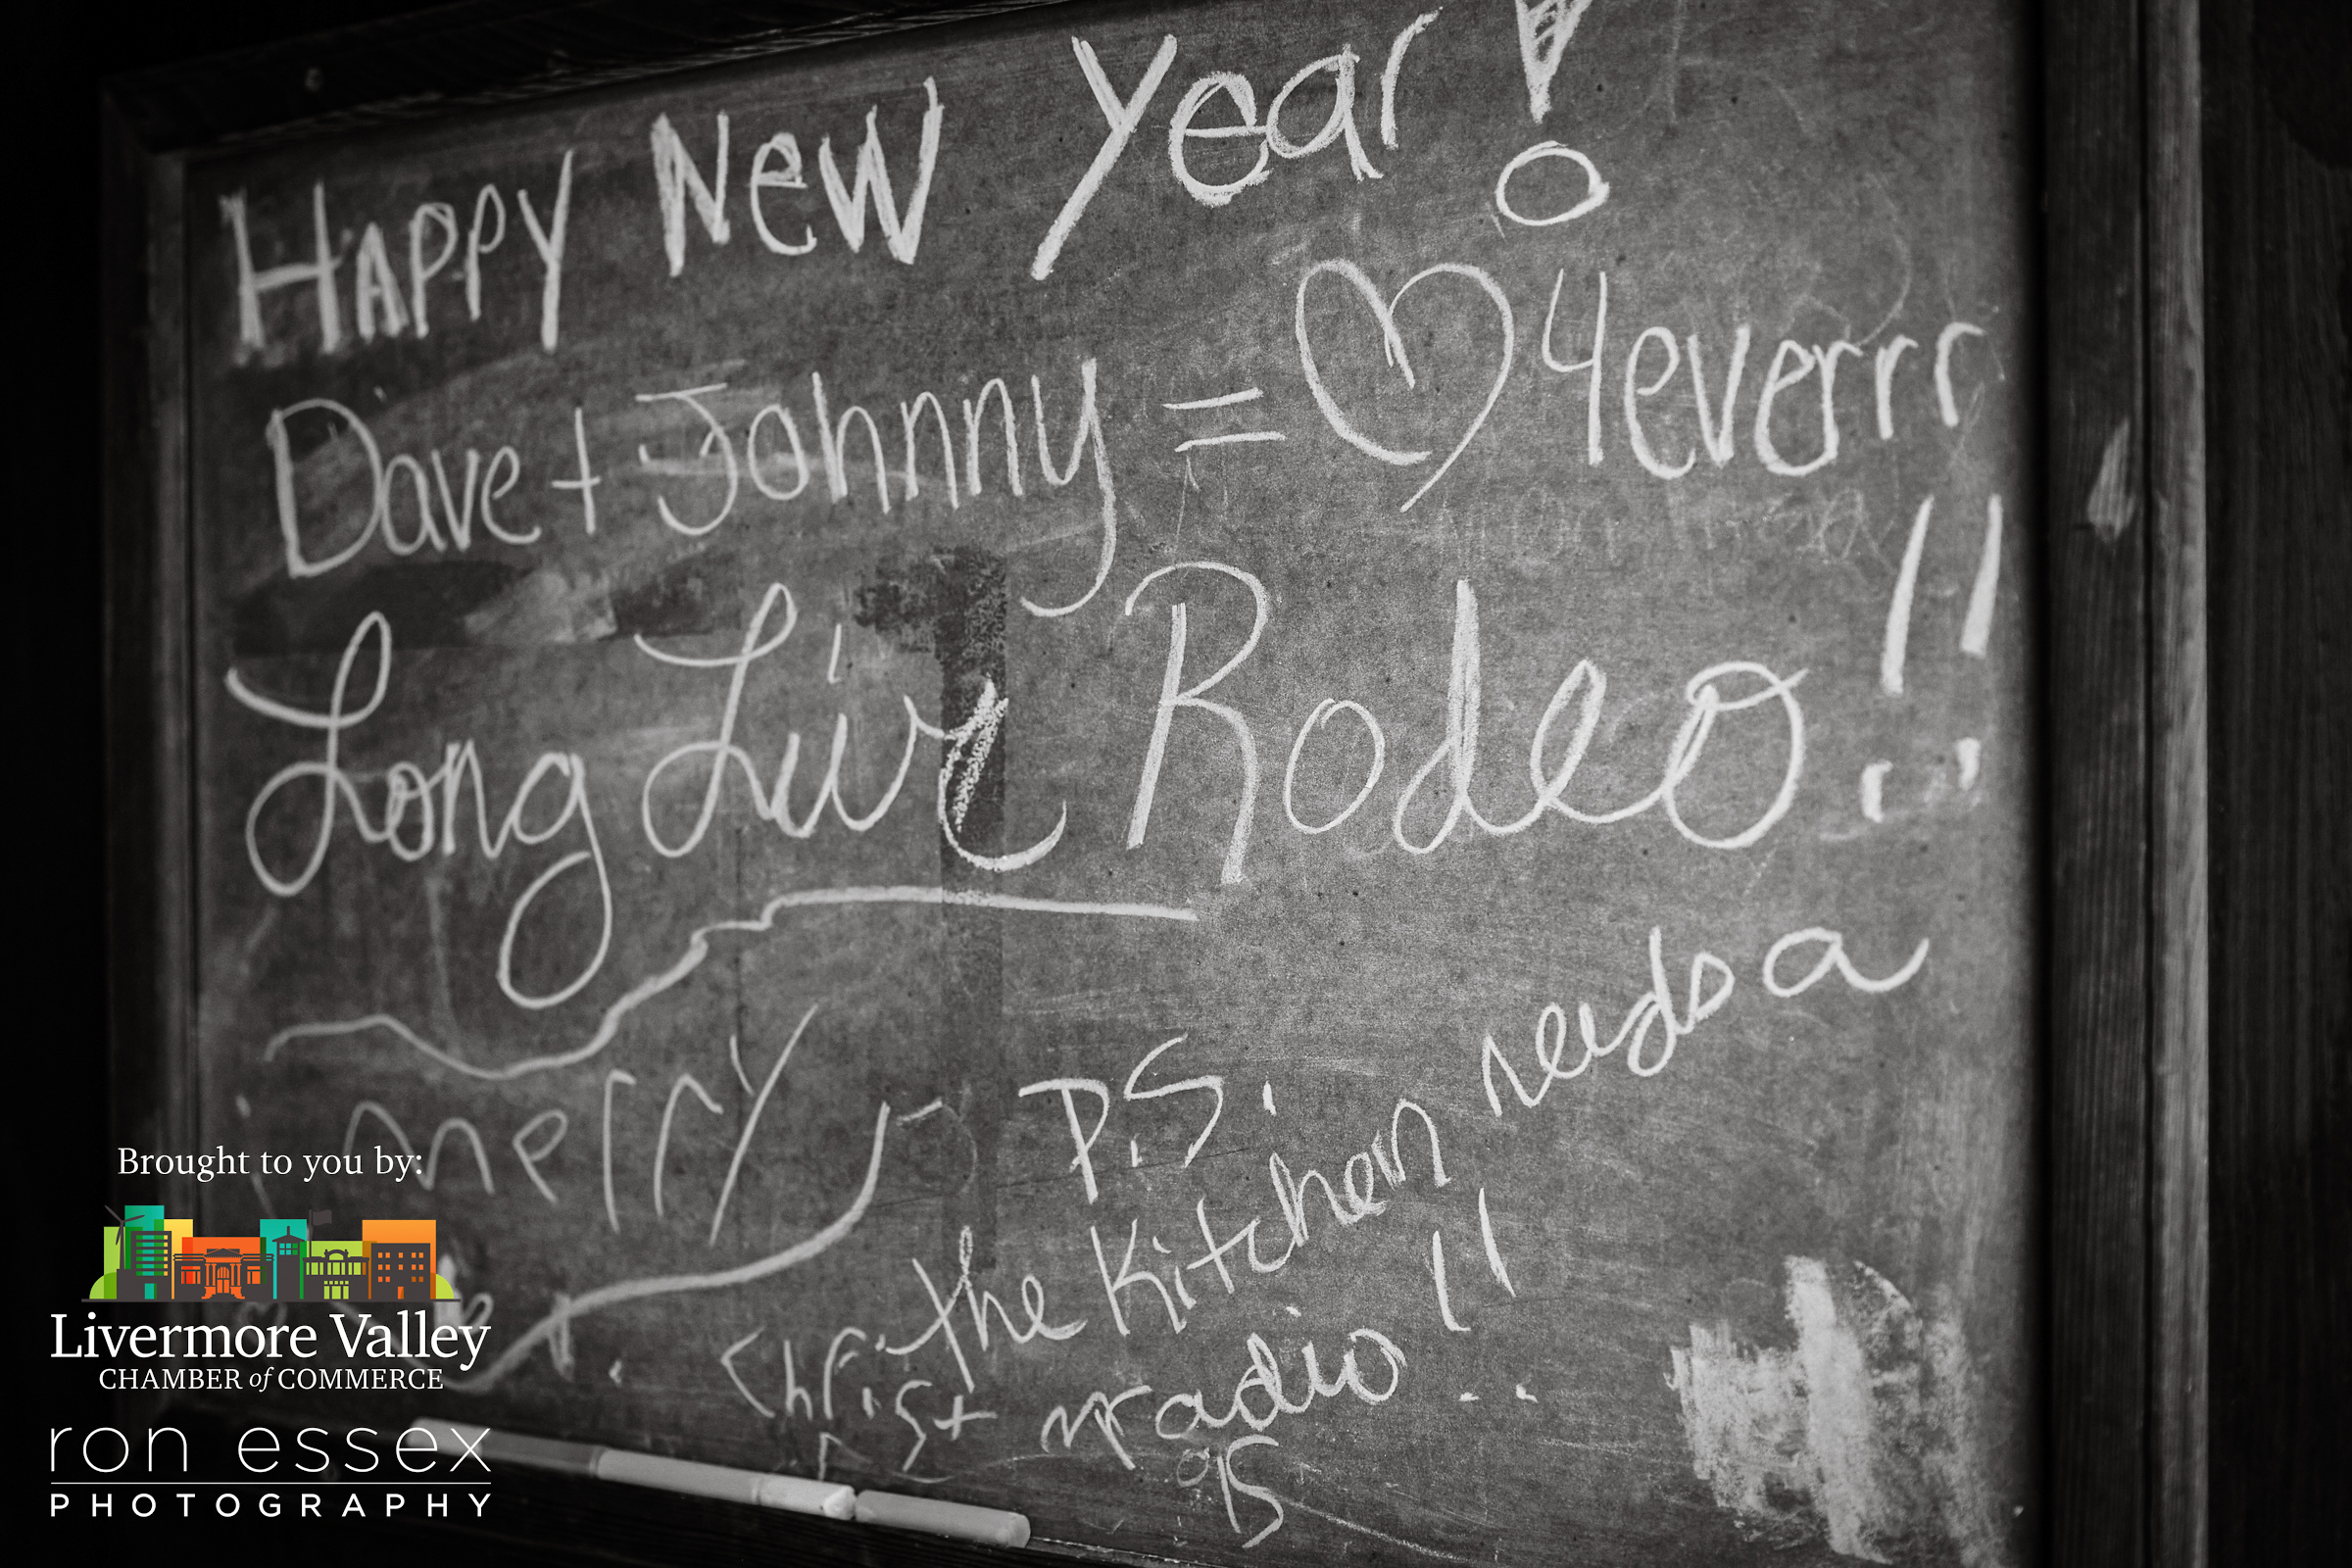 Happy New Year!
Dave + Johnny = ♡ 4everrr
Long Live Rodeo!!
merry
P.S.
the Kitchen needs a
radio!!
Christ
Brought to you by:
Livermore Valley
CHAMBER of COMMERCE
ron essex
PHOTOGRAPHY